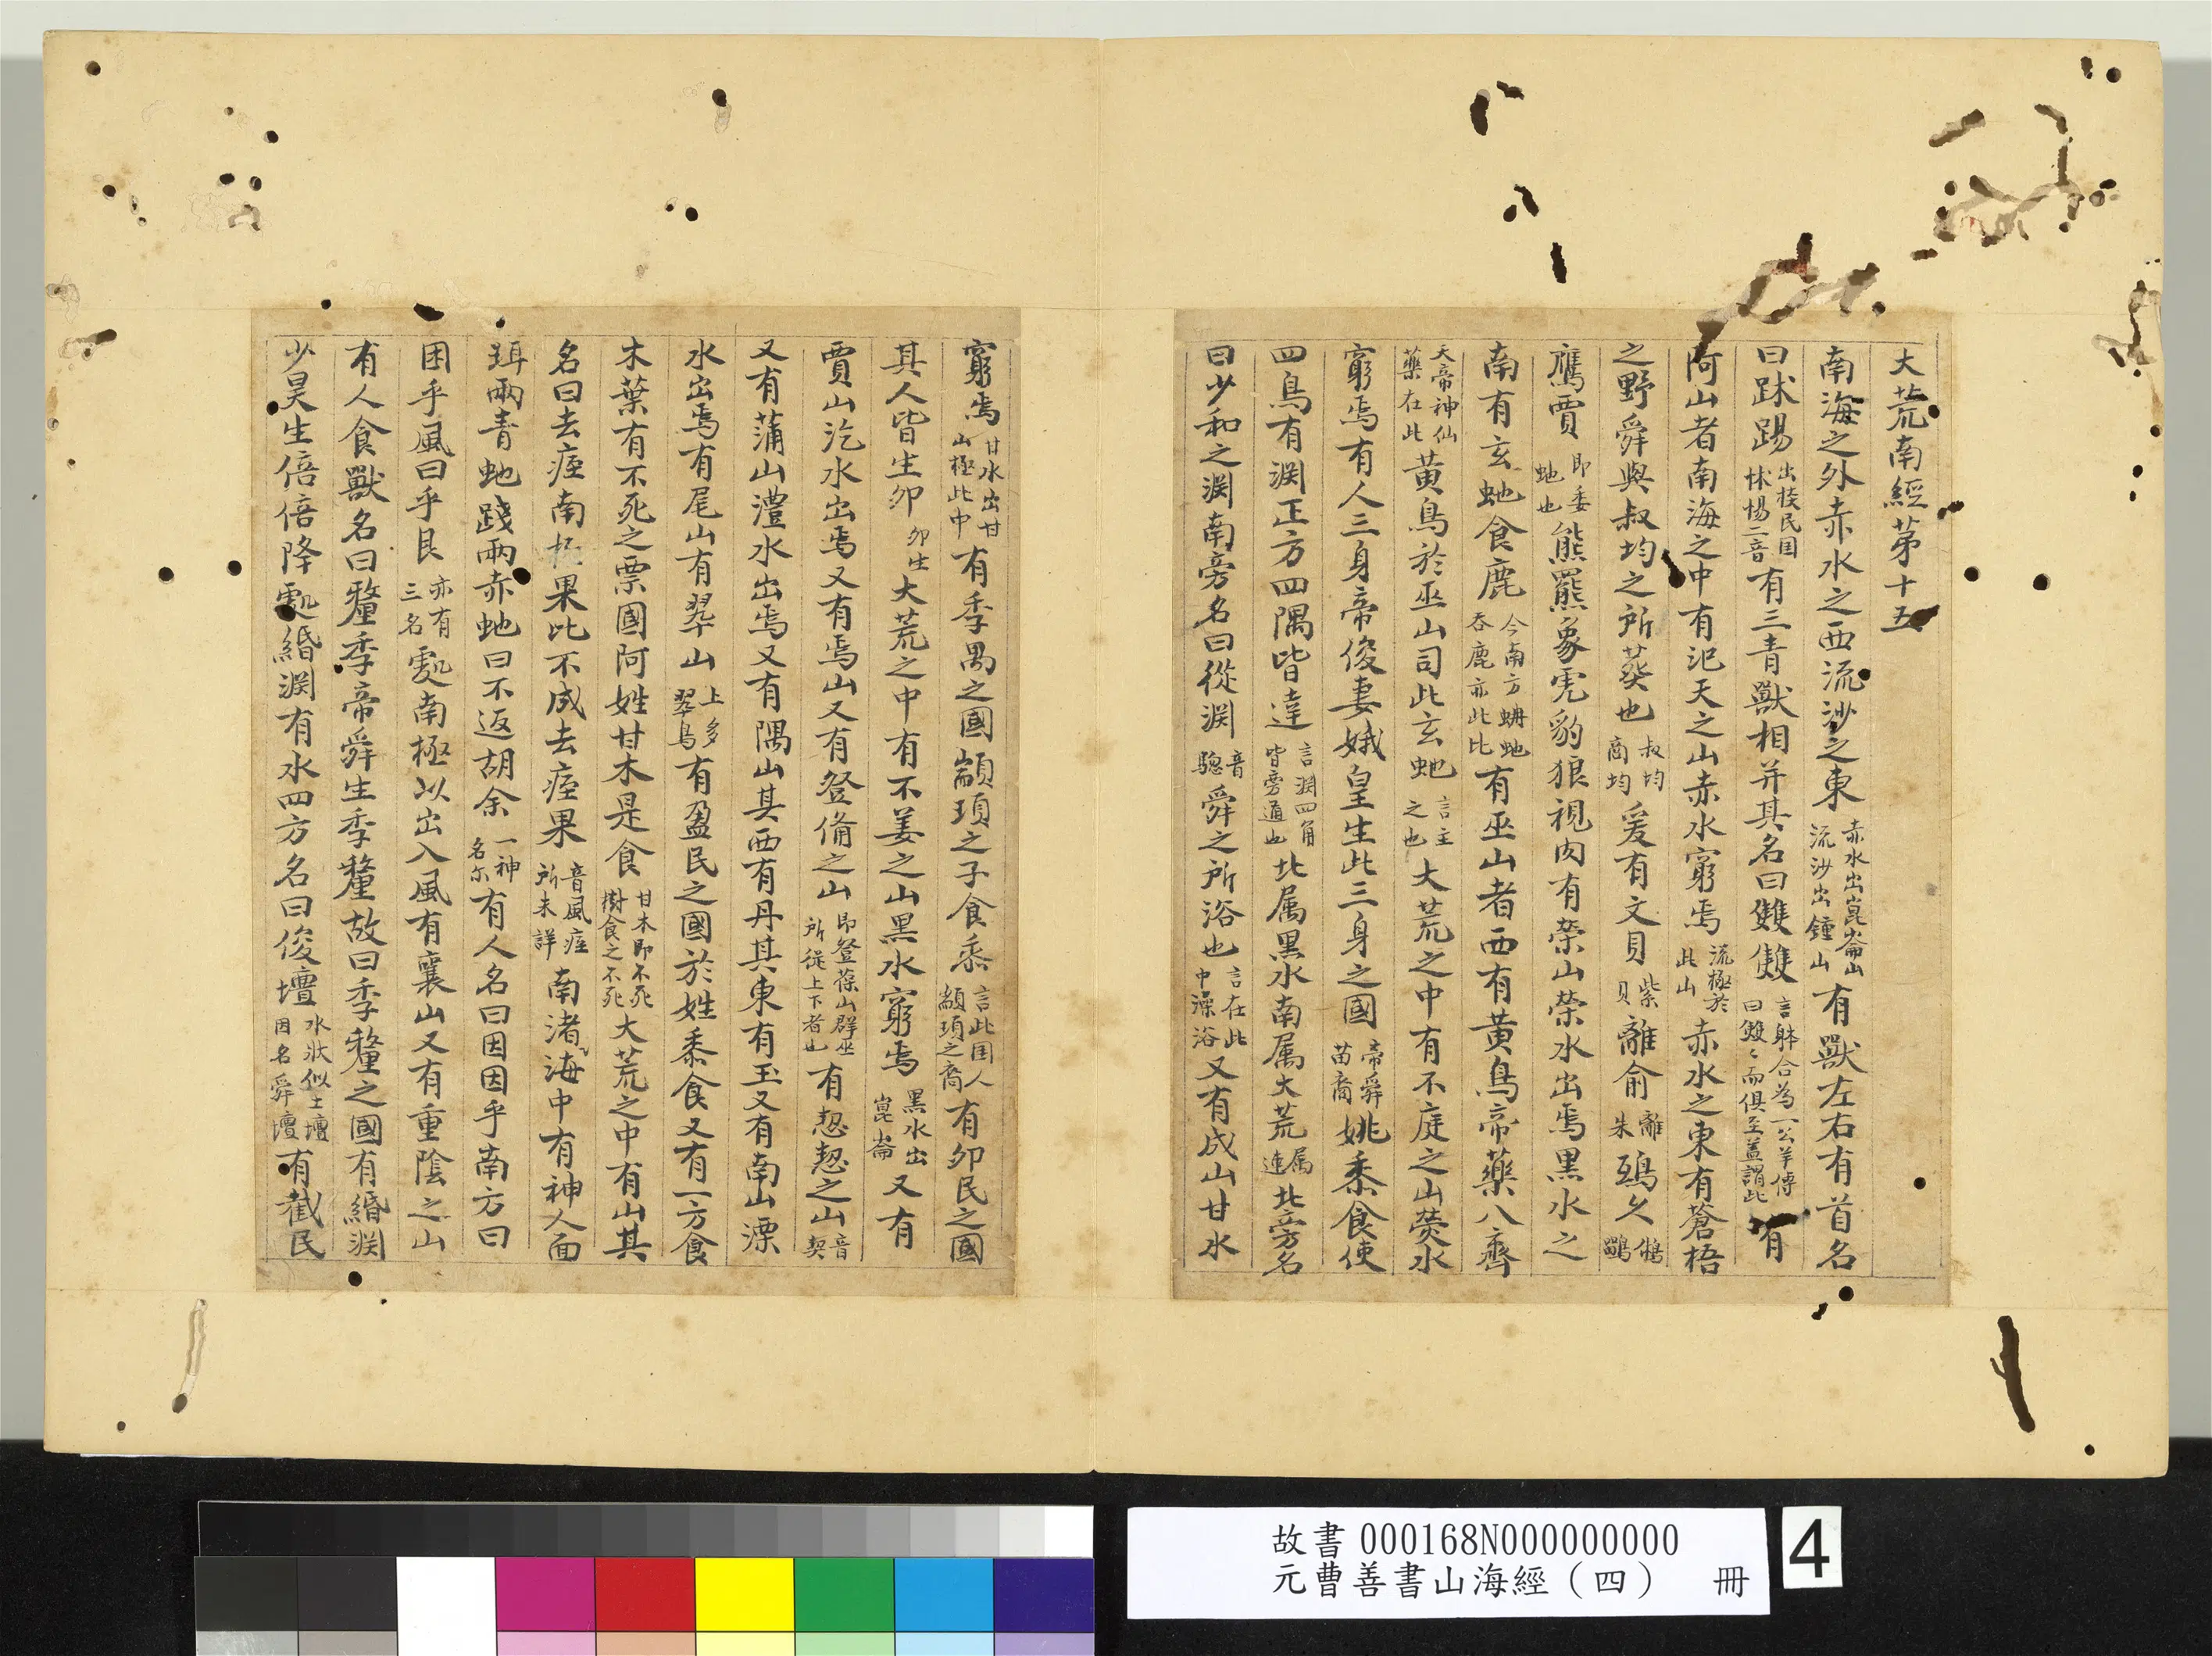 大荒南經第十五
南海之外赤水之西流沙之東赤水出崑崙山流沙出鍾山有獸左右有首名
曰跊踢出㧻民国怵惕二音有三青獸相并其名曰雙雙言躰合為一公羊傳曰雙〻而俱至蓋謂此有
阿山者南海之中有汜天之山赤水窮焉流極於此山赤水之東有蒼梧
之野舜與叔均之所葬也叔均商均爰有文貝紫貝離俞離朱鴟久鵂鶹
鷹賈即委虵也熊羆象虎豹狼視肉有榮山榮水出焉黑水之
南有玄虵食鹿今南方蚺虵吞鹿亦此比有巫山者西有黃鳥帝藥八齊
天帝神仙藥在此黃鳥於巫山司此玄虵言主之也大荒之中有不庭之山熒水
窮焉有人三身帝俊妻娥皇生此三身之國帝舜苗裔姚黍食使
四鳥有渊正方四隅皆達言渊四角皆旁通也北属黑水南属大荒属連北旁名
曰少和之渊南旁名曰從渊音驄舜之所浴也言在此中澡浴又有成山甘水
窮焉甘水出甘山極此中有季禺之國顓頊之子食黍言此国人顓頊之裔有卵民之國
其人皆生卵卵生大荒之中有不姜之山黑水窮焉黑水出崑崙又有
賈山汔水出焉又有焉山又有登俻之山即登葆山群巫所從上下者也有恝恝之山音契
又有蒲山澧水出焉又有隅山其西有丹其東有玉又有南山漂
水出焉有尾山有翠山上多翠鳥有盈民之國於姓黍食又有一方食
木葉有不死之票國阿姓甘木是食甘木即不死樹食之不死大荒之中有山其
名曰去痓南極果比不成去痓果音風痓所未詳南渚海中有神人面
珥兩青虵踐兩赤虵曰不返胡余一神名尔有人名曰因因乎南方曰
困乎風曰乎艮亦有三名處南極以出入風有襄山又有重陰之山
有人食獸名曰釐季帝舜生季釐故曰季釐之國有緡渊
少昊生倍倍降處緡渊有水四方名曰俊壇水狀似土壇因名舜壇有臷民
故書 000168N000000000
元曹善書山海經（四） 冊
4